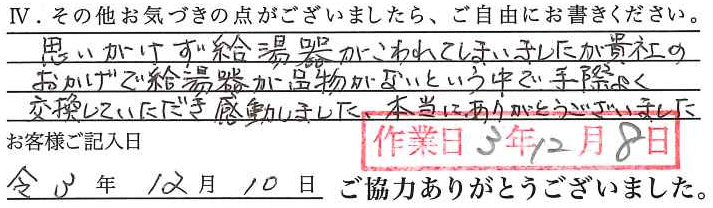 Ⅳ．その他お気づきの点がございましたら、ご自由にお書きください。
思いがけず給湯器がこわれてしまいましたが貴社の
おかげで給湯器が品物がないという中で手際よく
交換していただき感動しました、本当にありがとうございました
お客様ご記入日
作業日 3年12月8日
令3年 12月10日 ご協力ありがとうございました。